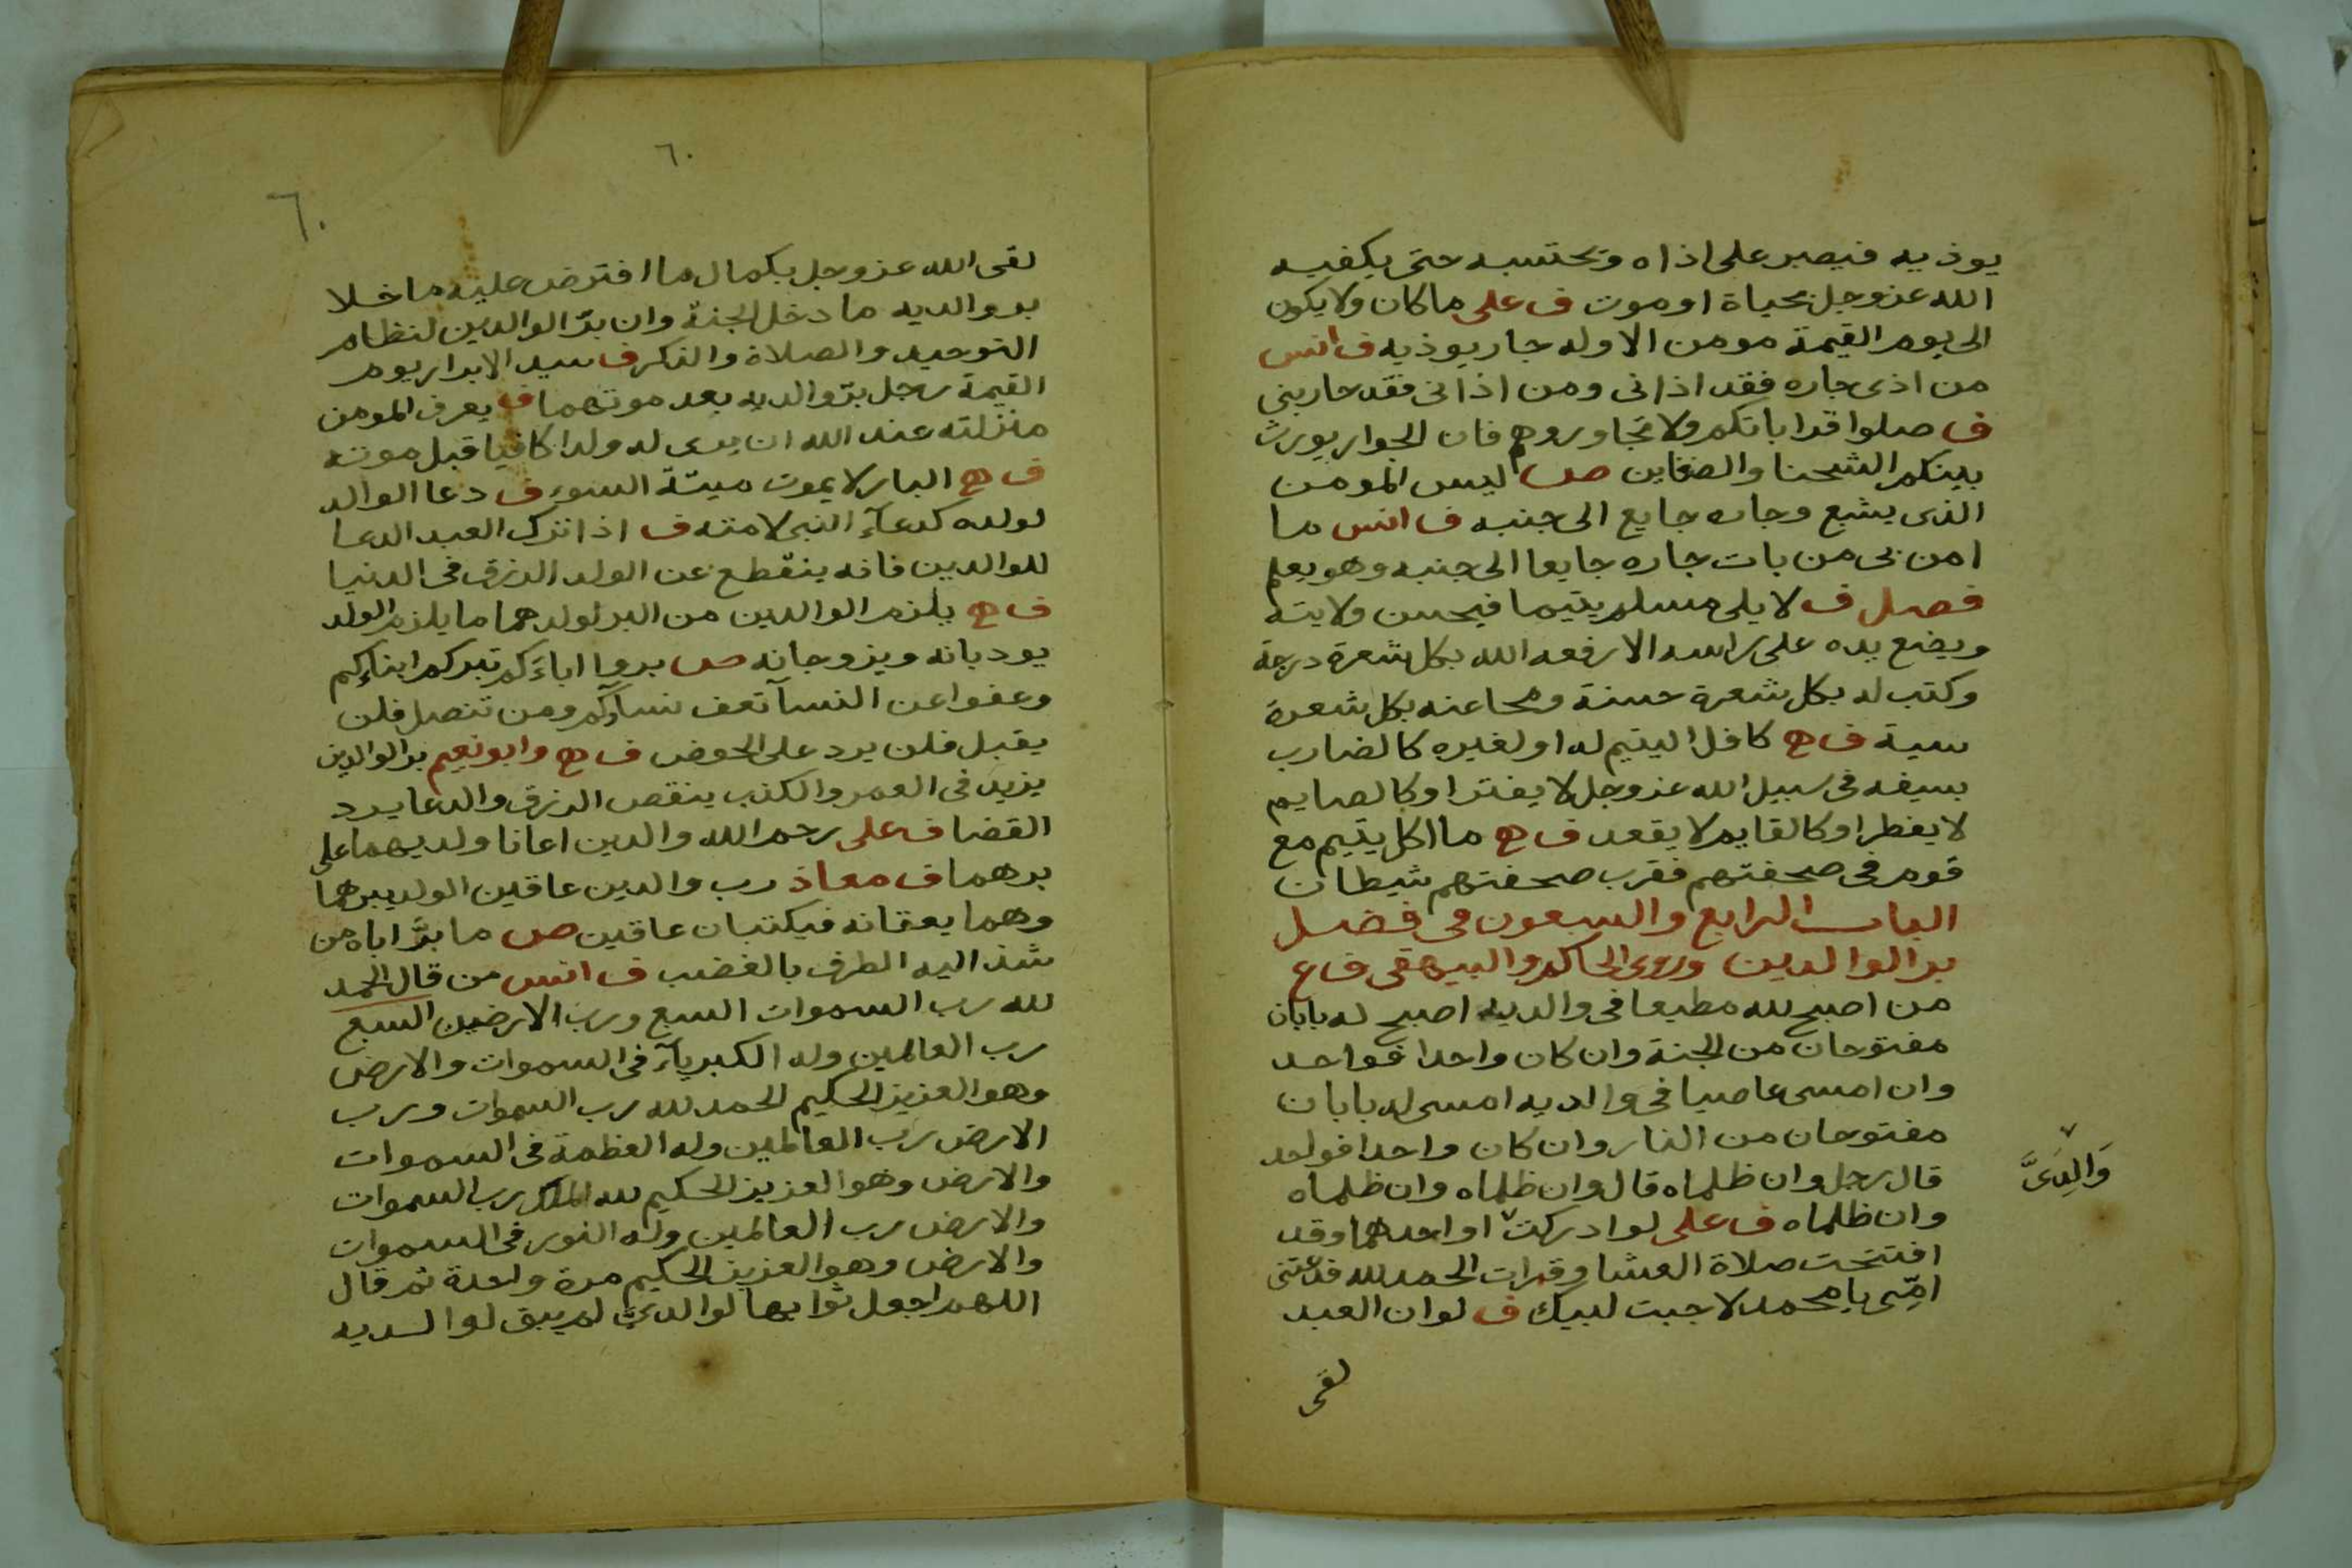 يوذيه فيصبر على اذاه ويحتسبه حتى يكفيه
الله عزوجل بحياة او موت ف على ما كان ولا يكون
الى يوم القيمة مومن الا وله جار يوذيه ف انس
من اذى جاره فقد اذانى ومن اذانى فقد حاربنى
ف صلوا قراباتكم ولا تجاوروهم فان الجوار يورث
بينكم الشحنا والضغاين ص ليس المومن
الذى يشبع وجاره جايع الى جنبه ف انس ما
امن بى من بات جاره جايعا الى جنبه وهو يعلم
فصل ف لا يلى مسلم يتيما فيحسن ولايته
ويضع يده على راسه الا رفعه الله بكل شعرة درجة
وكتب له بكل شعرة حسنة ومحا عنه بكل شعرة
سية ف ح كافل اليتيم له او لغيره كالضارب
بسيفه فى سبيل الله عزوجل لا يفتر او كالصايم
لا يفطر او كالقايم لا يقعد ف ح ما اكل يتيم مع
قوم فى صحفتهم فقرب صحفتهم شيطان
الباب الرابع والسبعون فى فضل
بر الوالدين وروى الحاكم والبيهقى ف ع
من اصبح لله مطيعا فى والديه اصبح له بابان
مفتوحان من الجنة وان كان واحدا فواحد
وان امسى عاصيا فى والديه امسى له بابان
مفتوحان من النار وان كان واحدا فواحد
قال رجل وان ظلماه قال وان ظلماه وان ظلماه
وان ظلماه ف على لو ادركت او احدهما وقد
وَالِدَىَّ
افتتحت صلاة العشا وقرات الحمد لله فدعتنى
امّى يا محمد لاجبت لبيك ف لو ان العبد
لقى
٦٠
٦٠
لقى الله عزوجل بكمال ما افترض عليه ما خلا
بر والديه ما دخل الجنة وان برّ الوالدين لنظام
التوحيد والصلاة والذكر ف سيد الابرار يوم
القيمة رجل برّ والديه بعد موتهما ف يعرف المومن
منزلته عند الله ان يرى له ولدا كافيا قبل موته
ف ح البار لا يموت ميتة السوء ف دعا الوالد
لولده كدعآء النبى لامته ف اذا ترك العبد الدعا
للوالدين فانه ينقطع عن الولد الرزق فى الدنيا
ف ح يلزم الوالدين من البر لولدهما ما يلزم الولد
يودبانه ويزوجانه ص بروا اباءكم تبركم ابناؤكم
وعفوا عن النسآ تعف نسآؤكم ومن تنصل فلن
يقبل فلن يرد على الحوض ف ح وابو نعيم بر الوالدين
يزيد فى العمر والكذب ينقص الرزق والدعا يرد
القضا ف على رحم الله والدين اعانا ولديهما على
برهما ف معاذ رب والدين عاقين الولد يبرهما
وهما يعقانه فيكتبان عاقين ص ما برّ اباه من
شد اليه الطرف بالغضب ف انس من قال الحمد
لله رب السموات السبع ورب الارضين السبع
رب العالمين وله الكبريآء فى السموات والارض
وهو العزيز الحكيم الحمد لله رب السموات ورب
الارض رب العالمين وله العظمة فى السموات
والارض وهو العزيز الحكيم لله الملك رب السموات
والارض رب العالمين وله النور فى السموات
والارض وهو العزيز الحكيم مرة واحدة ثم قال
اللهم اجعل ثوابها لوالدىّ لم يبق لوالديه